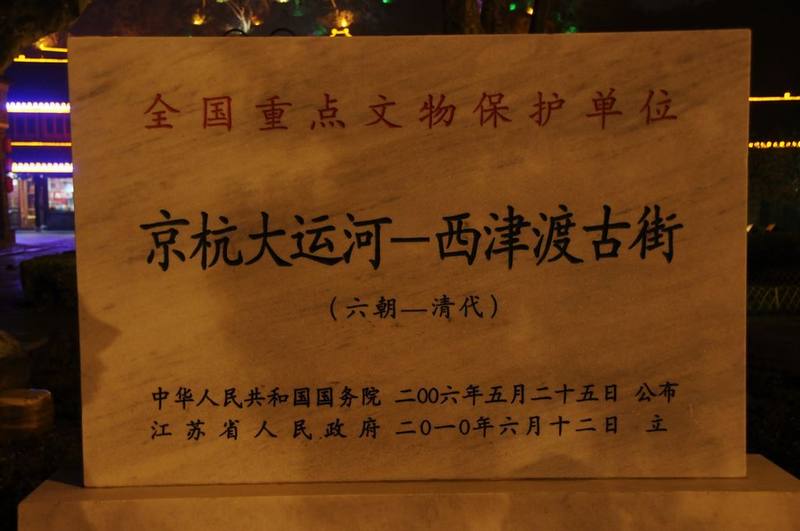 全国重点文物保护单位
京杭大运河—西津渡古街
（六朝—清代）
中华人民共和国国务院 二00六年五月二十五日 公布
江苏省人民政府 二0一0年六月十二日 立